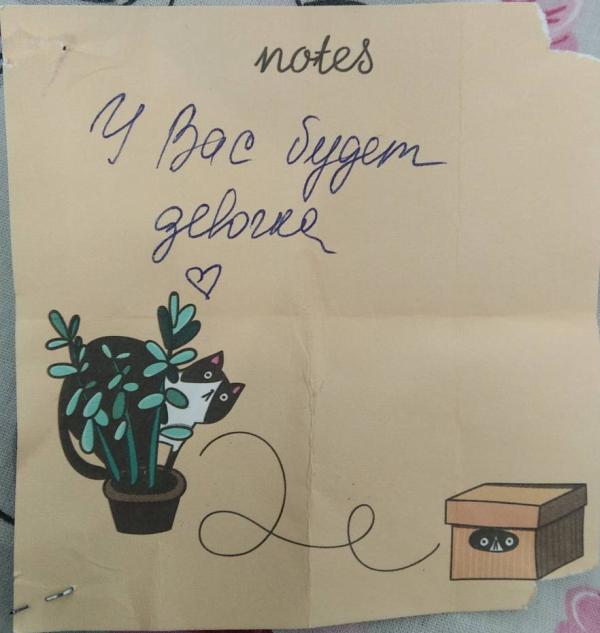 notes
У Вас будет
девочка